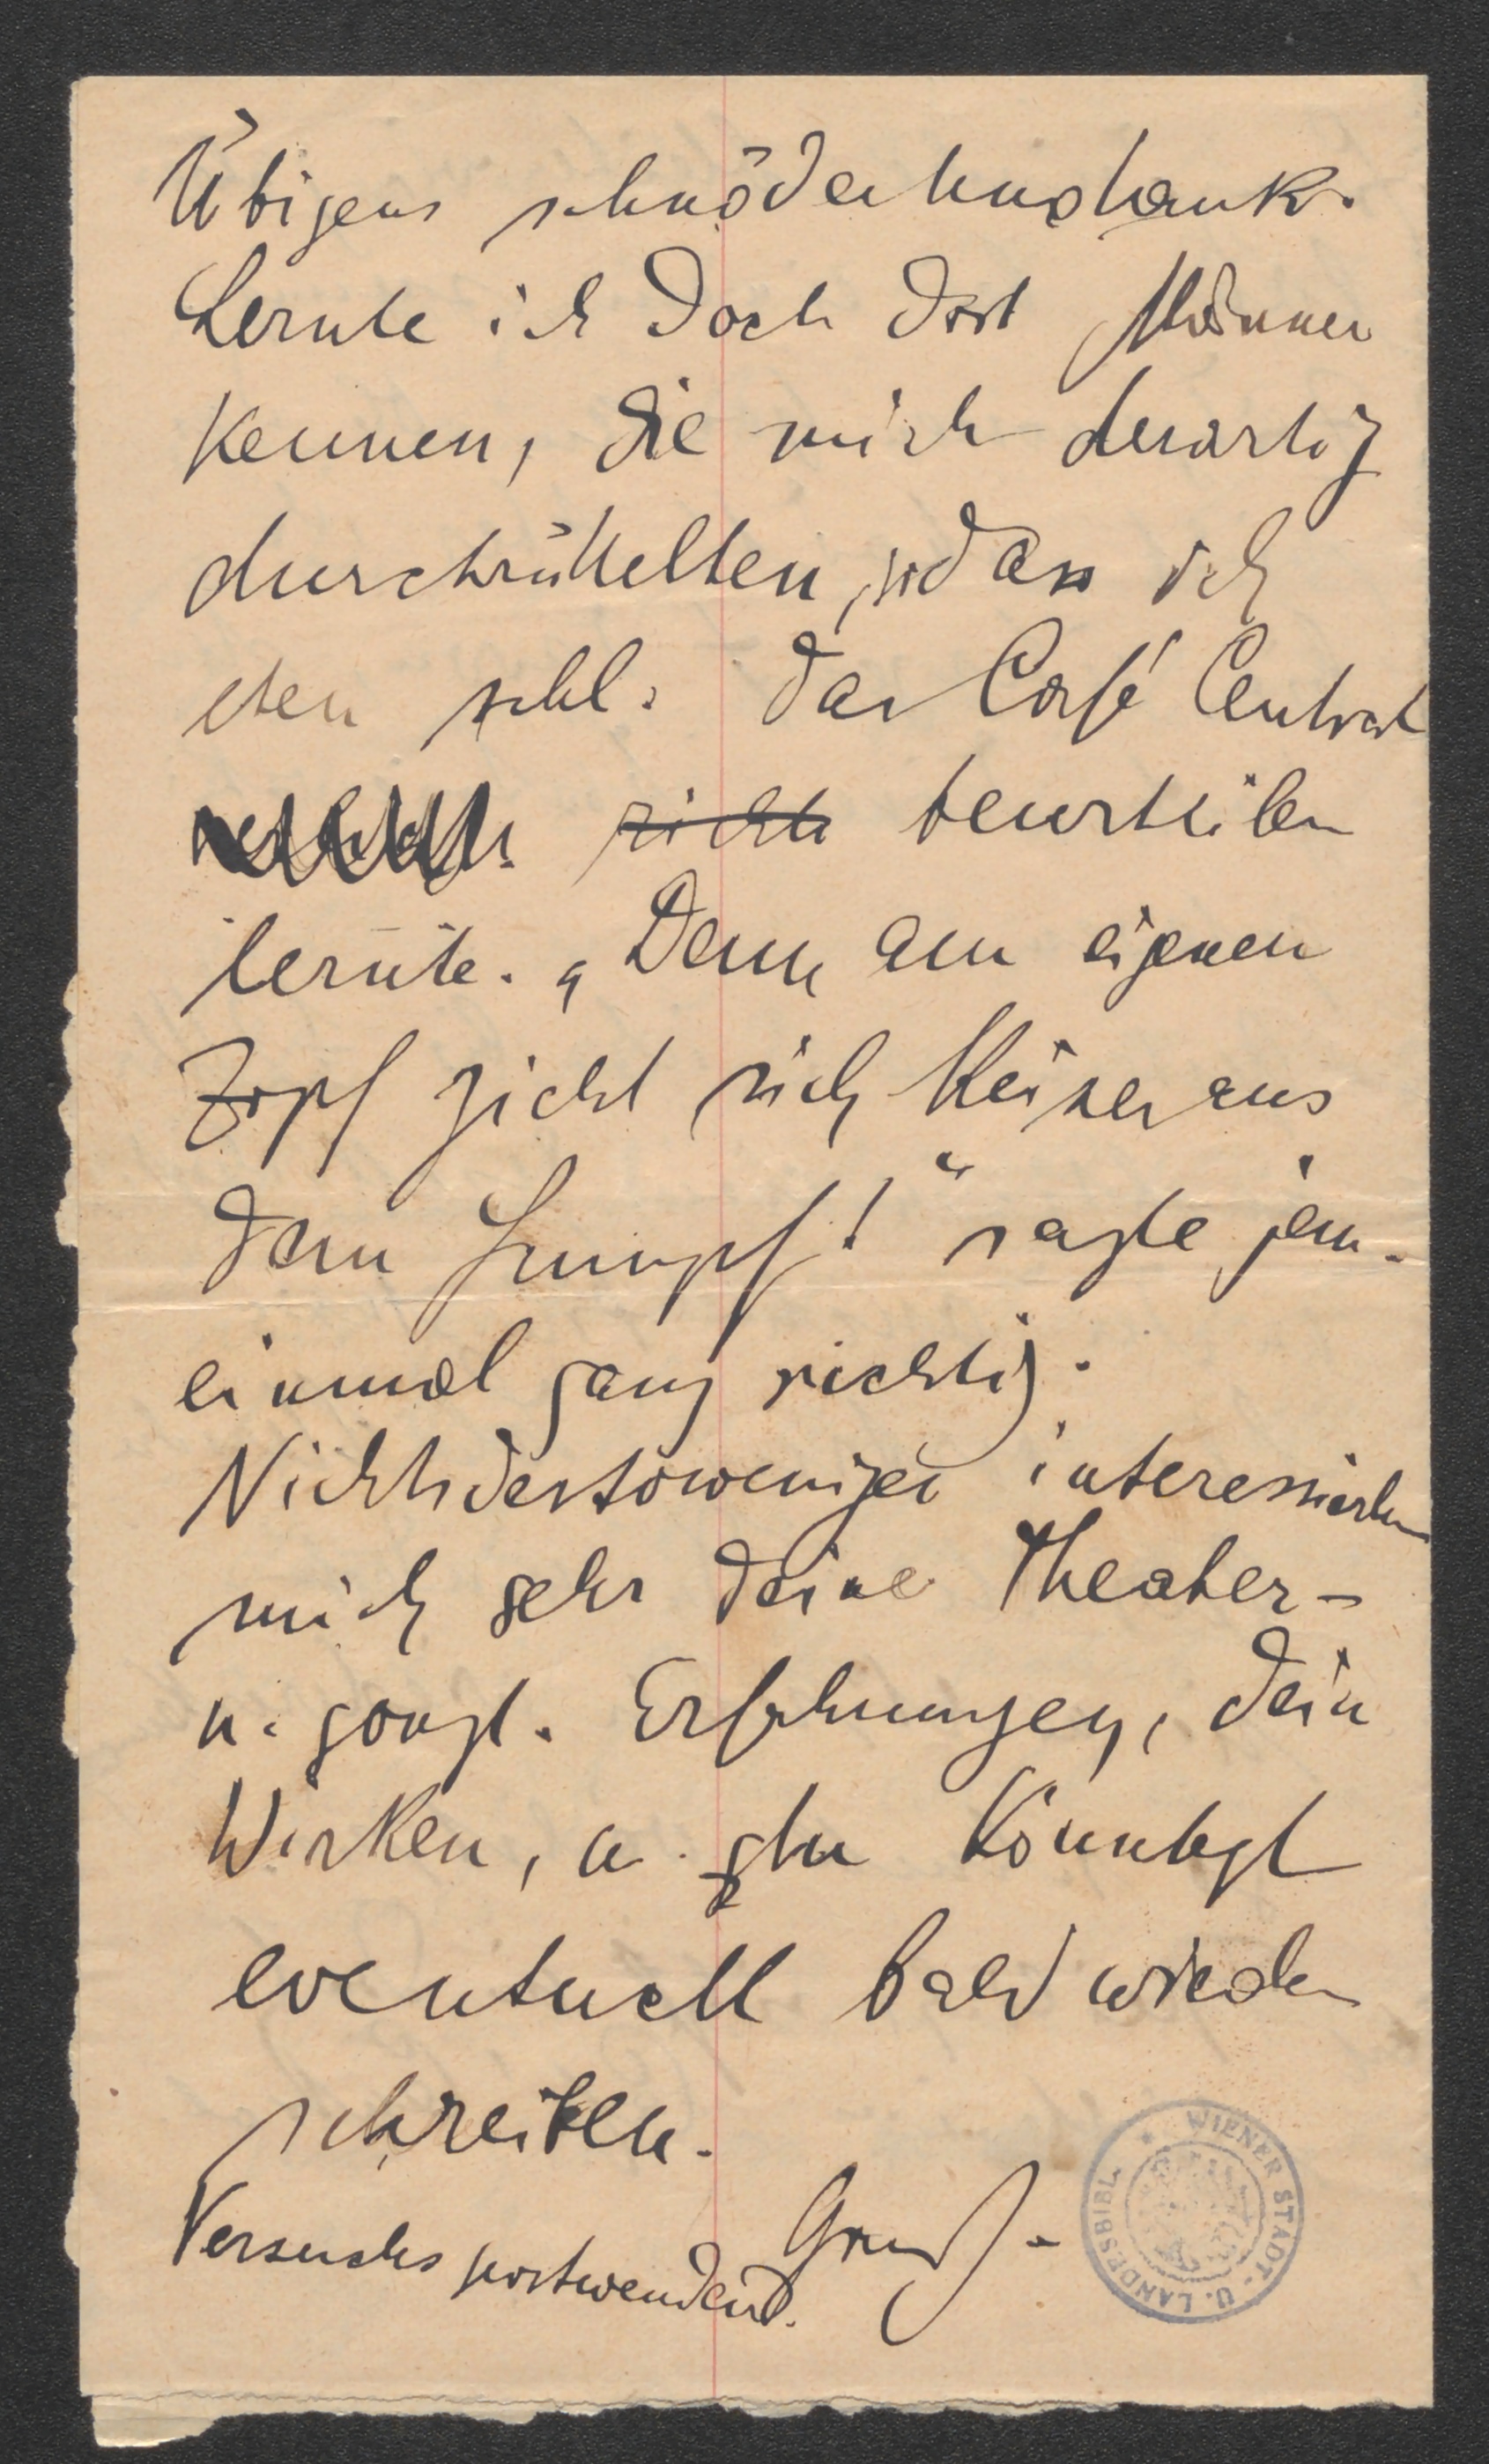 Übigens schnöder Undank.
Lernte ich doch dort Männer
kennen, die mich derartig
durchrüttelten, sodass ich
eben schl. das Café Central
richti beurteilen
lernte. „Denn am eigenen
Zopf zieht sich Keiner aus
dem Sumpf!“ sagte jem.
einmal ganz richtig.
Nichtsdestoweniger interessierten
mich sehr deine Theater-
u. sonst. Erfahrungen, dein
Wirken, u. du könntest
eventuell bald wieder
schreiben.
Versuchs postwendend. Gruß -
WIENER STADT- U. LANDESBIBL.